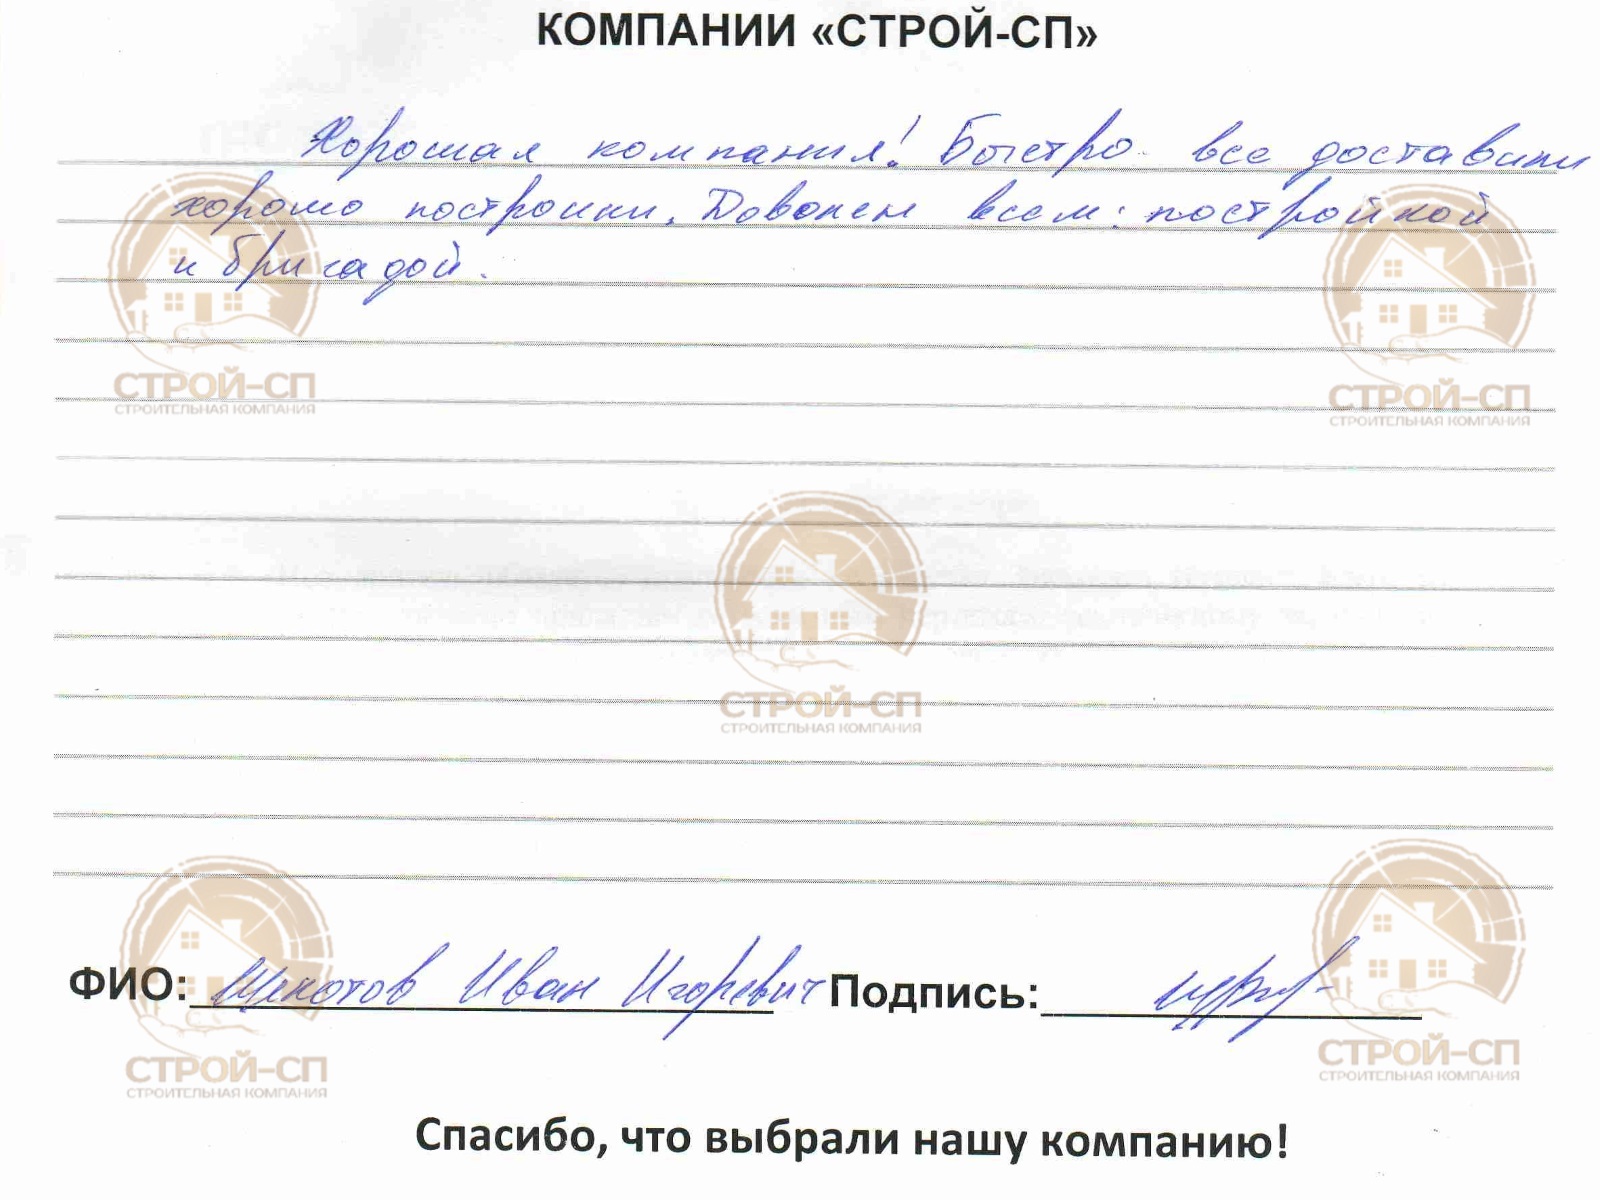 КОМПАНИИ «СТРОЙ-СП»
Хорошая компания! Быстро все доставили
хорошо построили. Доволен всем: постройкой
и бригадой.
СТРОЙ-СП
СТРОИТЕЛЬНАЯ КОМПАНИЯ
СТРОЙ-СП
СТРОИТЕЛЬНАЯ КОМПАНИЯ
СТРОЙ-СП
СТРОИТЕЛЬНАЯ КОМПАНИЯ
ФИО: Щекотов Иван Игоревич Подпись:
СТРОЙ-СП
СТРОИТЕЛЬНАЯ КОМПАНИЯ
СТРОЙ-СП
СТРОИТЕЛЬНАЯ КОМПАНИЯ
Спасибо, что выбрали нашу компанию!